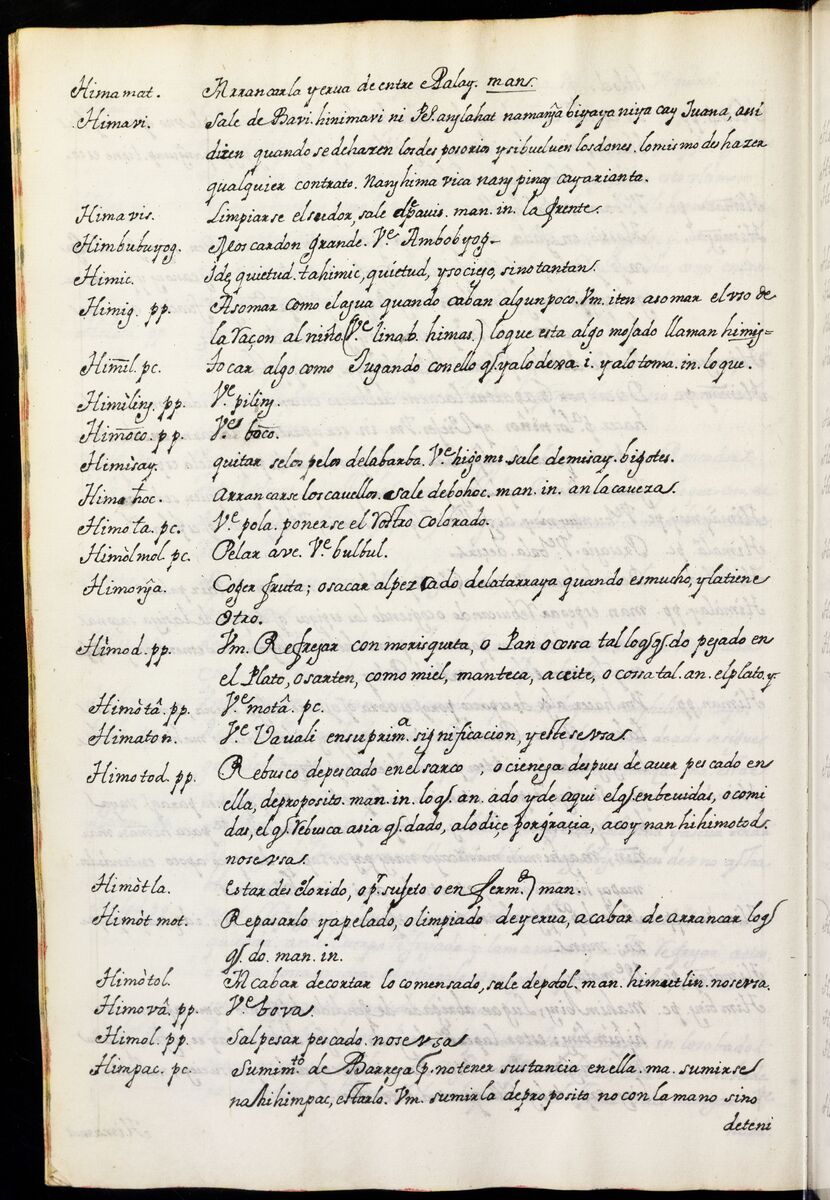 Himamat. Arrancar la yerua de entre el Palay. man.
Himavi. Sale de Bavi. hinimavi ni P.S. anylahat namanȳa biyaya niya cay Juana, assi
dizen quando se dehazen los desposorios y si buelven los dones. lo mismo deshazer
qualquier contrato. Nanyhimavica nany pinay cayarianta.
Himavis. Limpiarse el sudor, sale de pavis. man. in. la frente.
Himbubuyog. Moscardon grande. Ve. Ambobyog.
Himic. Ide, quietud. tahimic, quietud, y sociego, sino tantan.
Himig. pp. Asomar como el agua quando caban algun poco. Vm. iten asomar el vso de
la Raçon al niño (Ve. linab. himas.) lo que esta algo mojado llaman himis=
Him̄il. pc. tocar algo como Jugando con ello q.s ya lo dexa i. ya lo toma. in. lo que.
Himìling. pp. Ve. piling.
Him̄oco. pp. Ve. boco.
Himìsay. quitarse los pelos de la barba. Ve. higomi. sale de misay. bigotes.
Himohoc. arrancarse los cavellos. sale de bohoc. man. in. an la caveza.
Himola. pc. Ve. pola. ponerse el Rostro Colorado.
Himòlmol. pc. Pelar ave. Ve. bulbul.
Himonȳa. Coger fruta; o sacar al pezcado de la tarraya quando es mucho, y la tiene
otro.
Himod. pp. Vm. Refregar con morisqueta, o Pan o cossa tal lo q.s q.do pegado en
el Plato, o sarten, como miel, manteca, aceite, o cossa tal. an. el plato, y
Himòtâ. pp. Ve. motâ. pc.
Himaton. Ve. Vavali en su prim.a significacion, y este se vsa.
Himotod. pp. Rebusco de pescado en el sarco, o cienega despues de aver pescado en
ella, de proposito. man. in. lo q.s an. ado y de aqui el q.s en bevidas, o comi
das, el q.s rebusca asia q.s dado, alo diçe por graçia, acoy nanhihimotod.
no se vsa.
Himòtla. Estar descolorido, o p.r sujeto o enferm.d) man.
Himòtmot. Repasar lo ya pelado, o limpiado de yerua, acabar de arrancar lo q.s
q.do. man. in.
Himòtol. Acabar de cortar lo comensado, sale de potol. man. himutlin. no se vsa.
Himovâ. pp. Ve. bova.
Himol. pp. Salpesar pescado. no se vsa
Himpac. pc. Sumim.to de Barriga p. no tener sustancia en ella. ma. sumirse
nahihimpac, estarlo. Vm. sumirla de proposito no con la mano sino
deteni